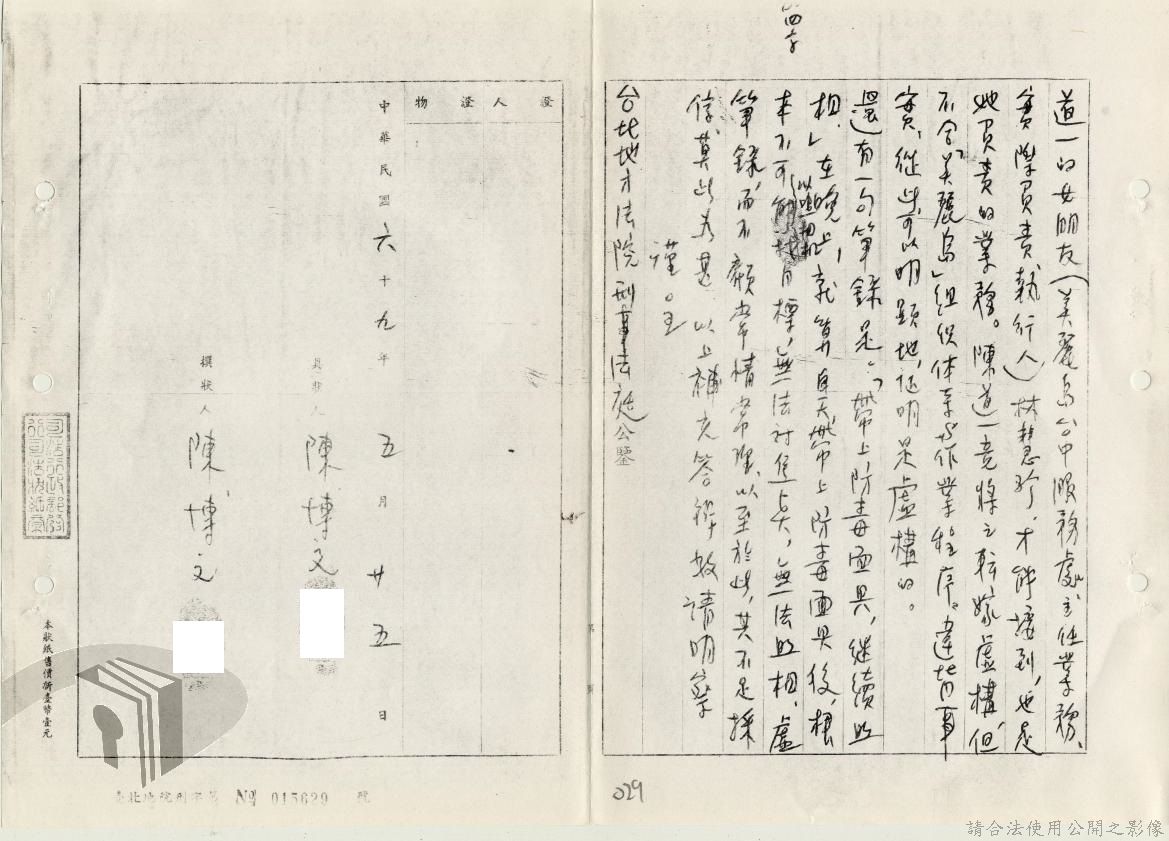 第四字
道一的女朋友(美麗島台中服務處主任業務、
實際負責執行人)林慧珍、才能接到,也是
她負責的業務。陳道一竟將之転嫁虛構,但
不合「美麗島」組織体系与作業程序。違背事
實,從此可以明顯地,証明是虛構的。
還有一句筆錄是:「帶上防毒面具,継續照
相。」在晚上,就算自天帶上防毒面具後,根
本不可能 以照相机 目標,無法対焦点,無法照相。虛
筆錄,而不顧常情常理,以至於此,其不足採
信,莫此為甚 以上補充答辯敬請明察
謹呈
台北地方法院刑事法庭公鑒
029
證人證物
中華民國六十九年五月廿五日
具狀人 陳博文
撰狀人 陳博文
本狀紙售價新臺幣壹元
臺北地院刑字第 No 015629 號
請合法使用公開之影像